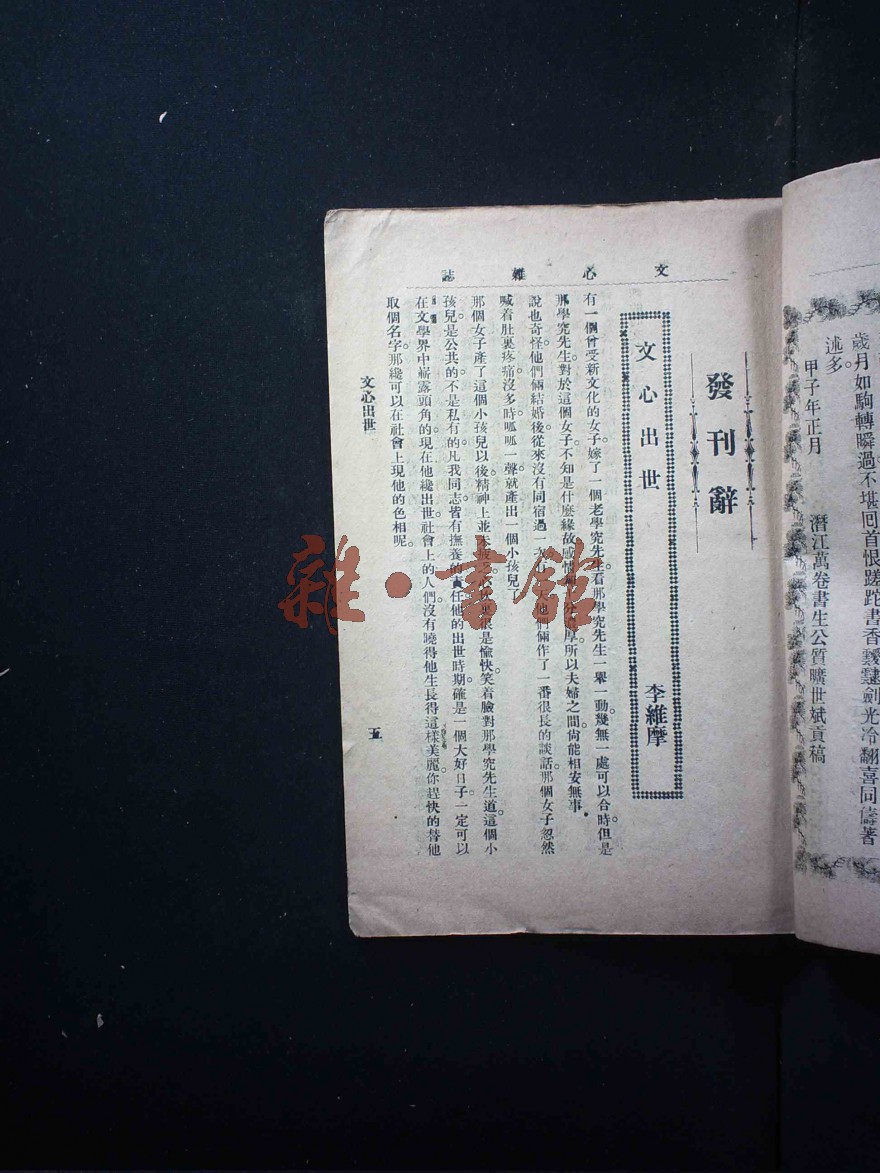 歲月如駒轉瞬過。不堪回首恨蹉跎。書香
劍光冷翻喜同儔著
述多。
甲子年正月
潛江萬卷書生公質曠世斌貢稿
文心雜誌
發刊辭
文心出世
李維摩
有一個曾受新文化的女子嫁了一個老學究先生。看那學究先生一舉一動。幾無一處可以合時。但是
那學究先生。對於這個女子。不知是什麼緣故。感情厚。所以夫婦之間。尙能相安無事。
說也奇怪。他們倆結婚後。從來沒有同宿過一次。有一天他們倆作了一番很長的談話。那個女子忽然
喊着肚裏疼痛。沒多時。呱呱一聲。就產出一個小孩兒了。
那個女子產了這個小孩兒以後。精神上並未疲乏。心坎裏很是愉快。笑着臉對那學究先生道。這個小
孩兒。是公共的。不是私有的。凡我同志。皆有撫養的責任。他的出世時期。確是一個大好日子。一定可以
在文學界中嶄露頭角的。現在他纔出世。社會上的人們。沒有曉得他生長得這樣美麗。你趕快的替他
取個名字。那纔可以在社會上現他的色相呢。
文心出世
五
雜·書館